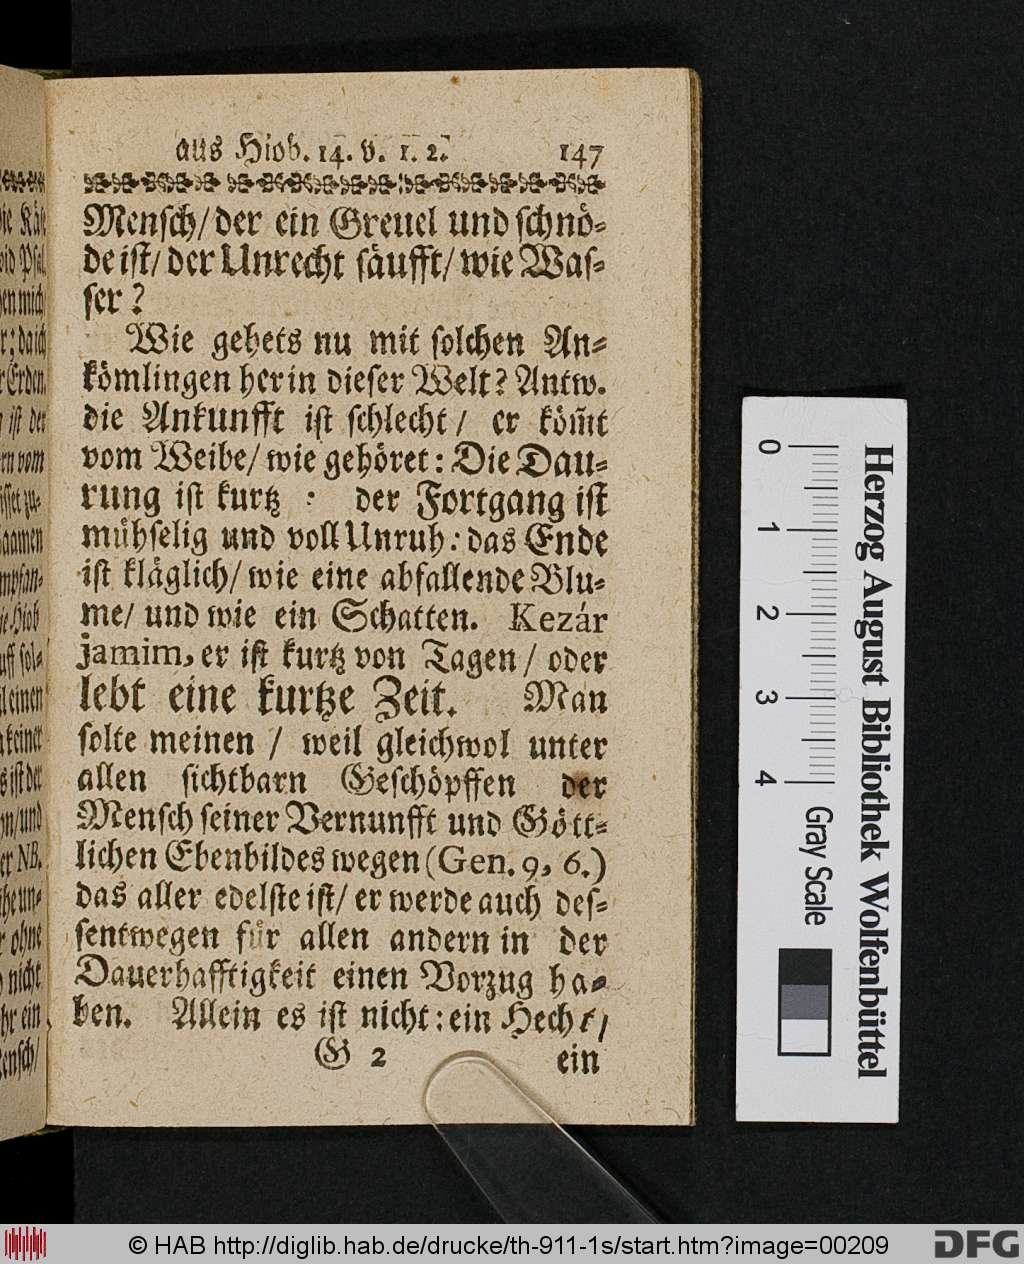 aus Hiob. 14. v. 1. 2. 147
Mensch/ der ein Greuel und schnö-
de ist/ der Unrecht säufft/ wie Was-
ser?
Wie gehets nu mit solchen An-
kömlingen herin dieser Welt? Antw.
die Ankunfft ist schlecht/ er köm̃t
vom Weibe/ wie gehöret: Die Dau-
rung ist kurtz : der Fortgang ist
mühselig und voll Unruh: das Ende
ist kläglich/ wie eine abfallende Blu-
me/ und wie ein Schatten. Kezár
jamim, er ist kurtz von Tagen/ oder
lebt eine kurtze Zeit. Man
solte meinen / weil gleichwol unter
allen sichtbarn Geschöpffen der
Mensch seiner Vernunfft und Gött-
lichen Ebenbildes wegen (Gen. 9, 6.)
das aller edelste ist/ er werde auch des-
sentwegen für allen andern in der
Dauerhafftigkeit einen Vorzug ha-
ben. Allein es ist nicht: ein Hecht/
G 2 ein
0 1 2 3 4 Gray Scale
Herzog August Bibliothek Wolfenbüttel
© HAB http://diglib.hab.de/drucke/th-911-1s/start.htm?image=00209
DFG